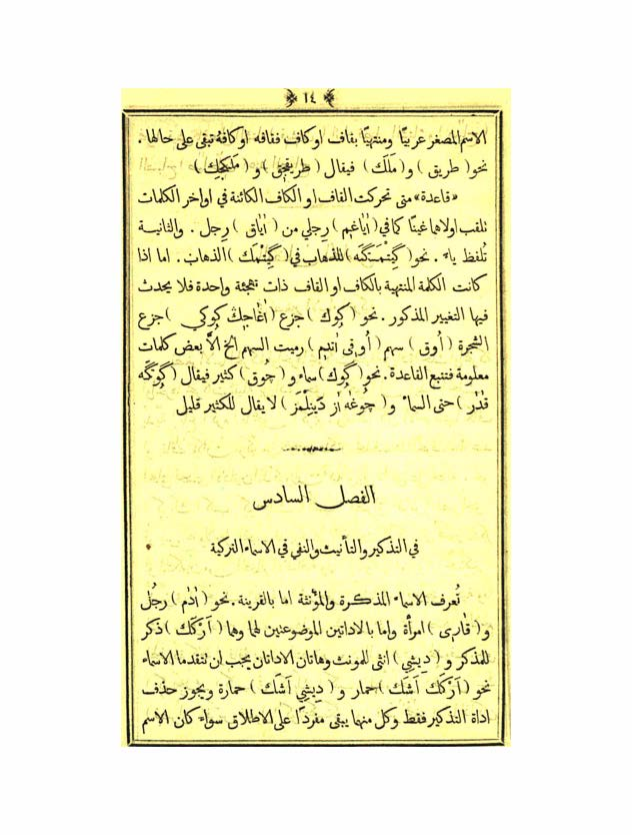 ١٤
الاسم المصغر عربيًا ومنتهيًا بقاف او كاف فقافه او كافه تبقى على حالها .
نحو ( طريق ) و( مَلَك ) فيقال ( طريقجق ) و ( ملكجك )
«قاعدة» متى تحركت القاف او الكاف الكائنة في اواخر الكلمات
تقلب اولاهما غينًا كما في ( اَيَاغم ) رجلي من ( اَيَاق ) رِجل . والثانية
تُلفظ ياء . نحو ( گِيتْمَگَه ) للذهاب في ( گِيتْمَك ) الذهاب . اما اذا
كانت الكلمة المنتهية بالكاف او القاف ذات تهجئة واحدة فلا يحدث
فيها التغيير المذكور . نحو ( كوك ) جزع ( اَغَاجِكْ كوكي ) جزع
الشجرة ( اُوق ) سهم ( اُوقى اَتدِم ) رميت السهم الخ الَّا بعض كلمات
معلومة فتتبع القاعدة . نحو ( گوك ) سماء و ( چُوق ) كثير فيقال ( گوگَه
قَدَر ) حتى السماء و( چُوغَه از دَيِنِلْمَز ) لا يقال للكثير قليل
الفصل السادس
في التذكير والتأنيث والنفي في الاسماء التركية
تُعرف الاسماء المذكرة والمؤنثة اما بالقرينة . نحو ( اَدَم ) رجُل
و( قَارِى ) امرأة واما بالاداتين الموضوعتين لهما وهما ( اَرْكَك ) ذكر
للمذكر و ( دِيشِي ) انثى للمونث وهاتان الاداتان يجب ان تتقدما الاسماء
نحو ( اَرْكَك اَشَك ) حمار و ( دِيشِي اَشَك ) حمارة ويجوز حذف
اداة التذكير فقط وكل منهما يبقى مفردًا على الاطلاق سواء كان الاسم